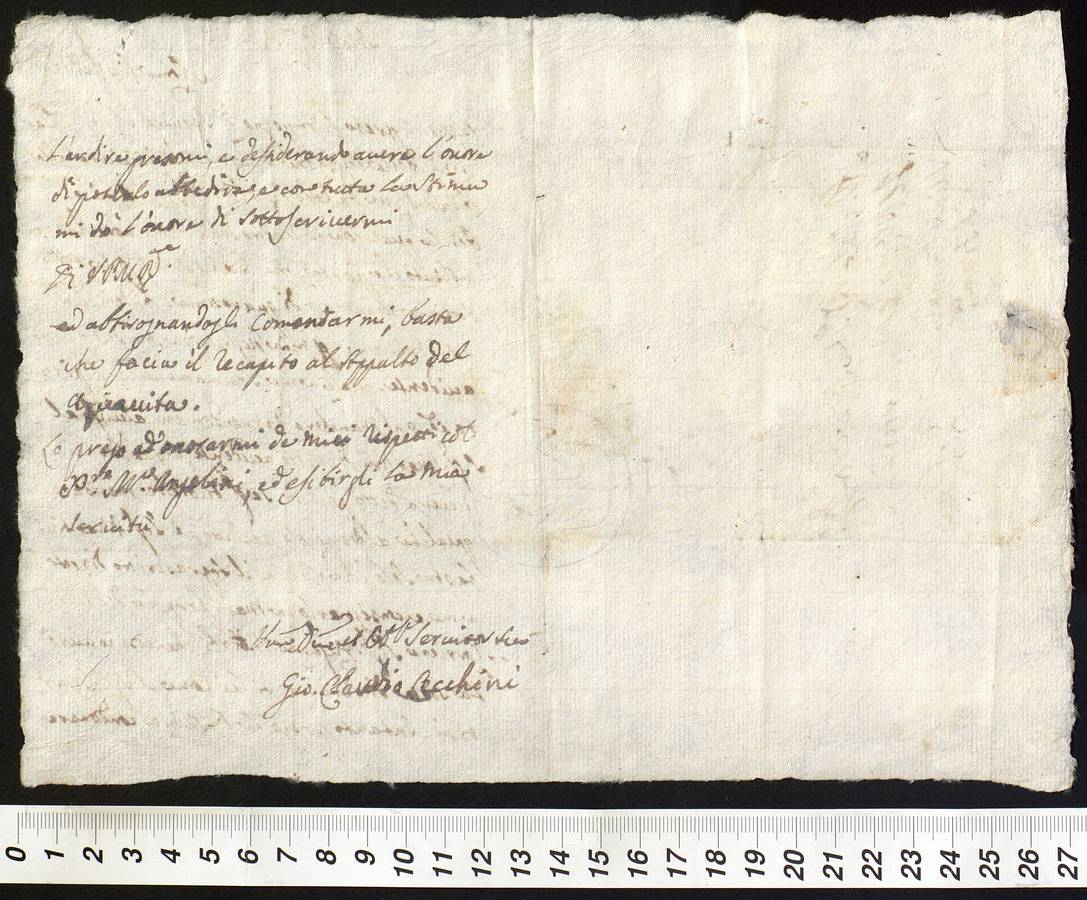 L'ardire presomi, e desiderando avere l'onore
di poterlo obbedire, e con tutta la stima
mi dò l'onore di sottoscrivermi
Di V.
ed abbisognandogli Comendarmi, basta
che facia il recapito al Appalto del
Aquavita.
Lo prego d'onorarmi de miei rispeti col
P. M. Angelini, ed esibirgli la mia
servitù
Servitor
Gio. Claudio Cecchini
0 1 2 3 4 5 6 7 8 9 10 11 12 13 14 15 16 17 18 19 20 21 22 23 24 25 26 27